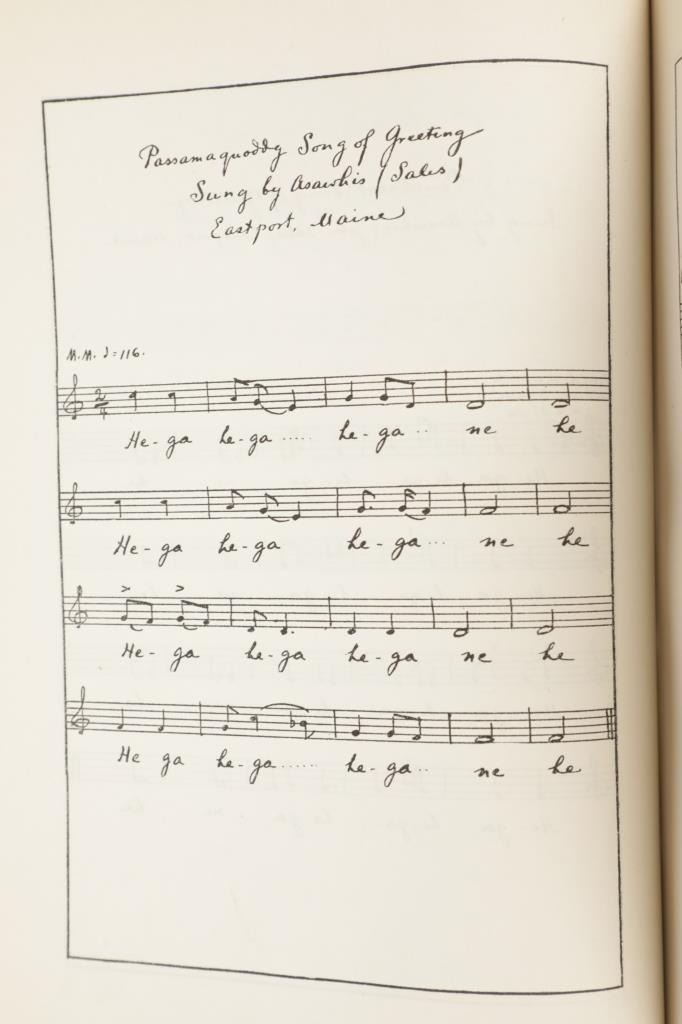 Passamaquoddy Song of Greeting
Sung by Asawhis (Sales)
Eastport, Maine
M.M. ♩=116.
2/4
He-ga he-ga...... he-ga... ne he
He-ga he-ga he-ga... ne he
He-ga he-ga he-ga ne he
He ga he-ga....... he-ga.. ne he